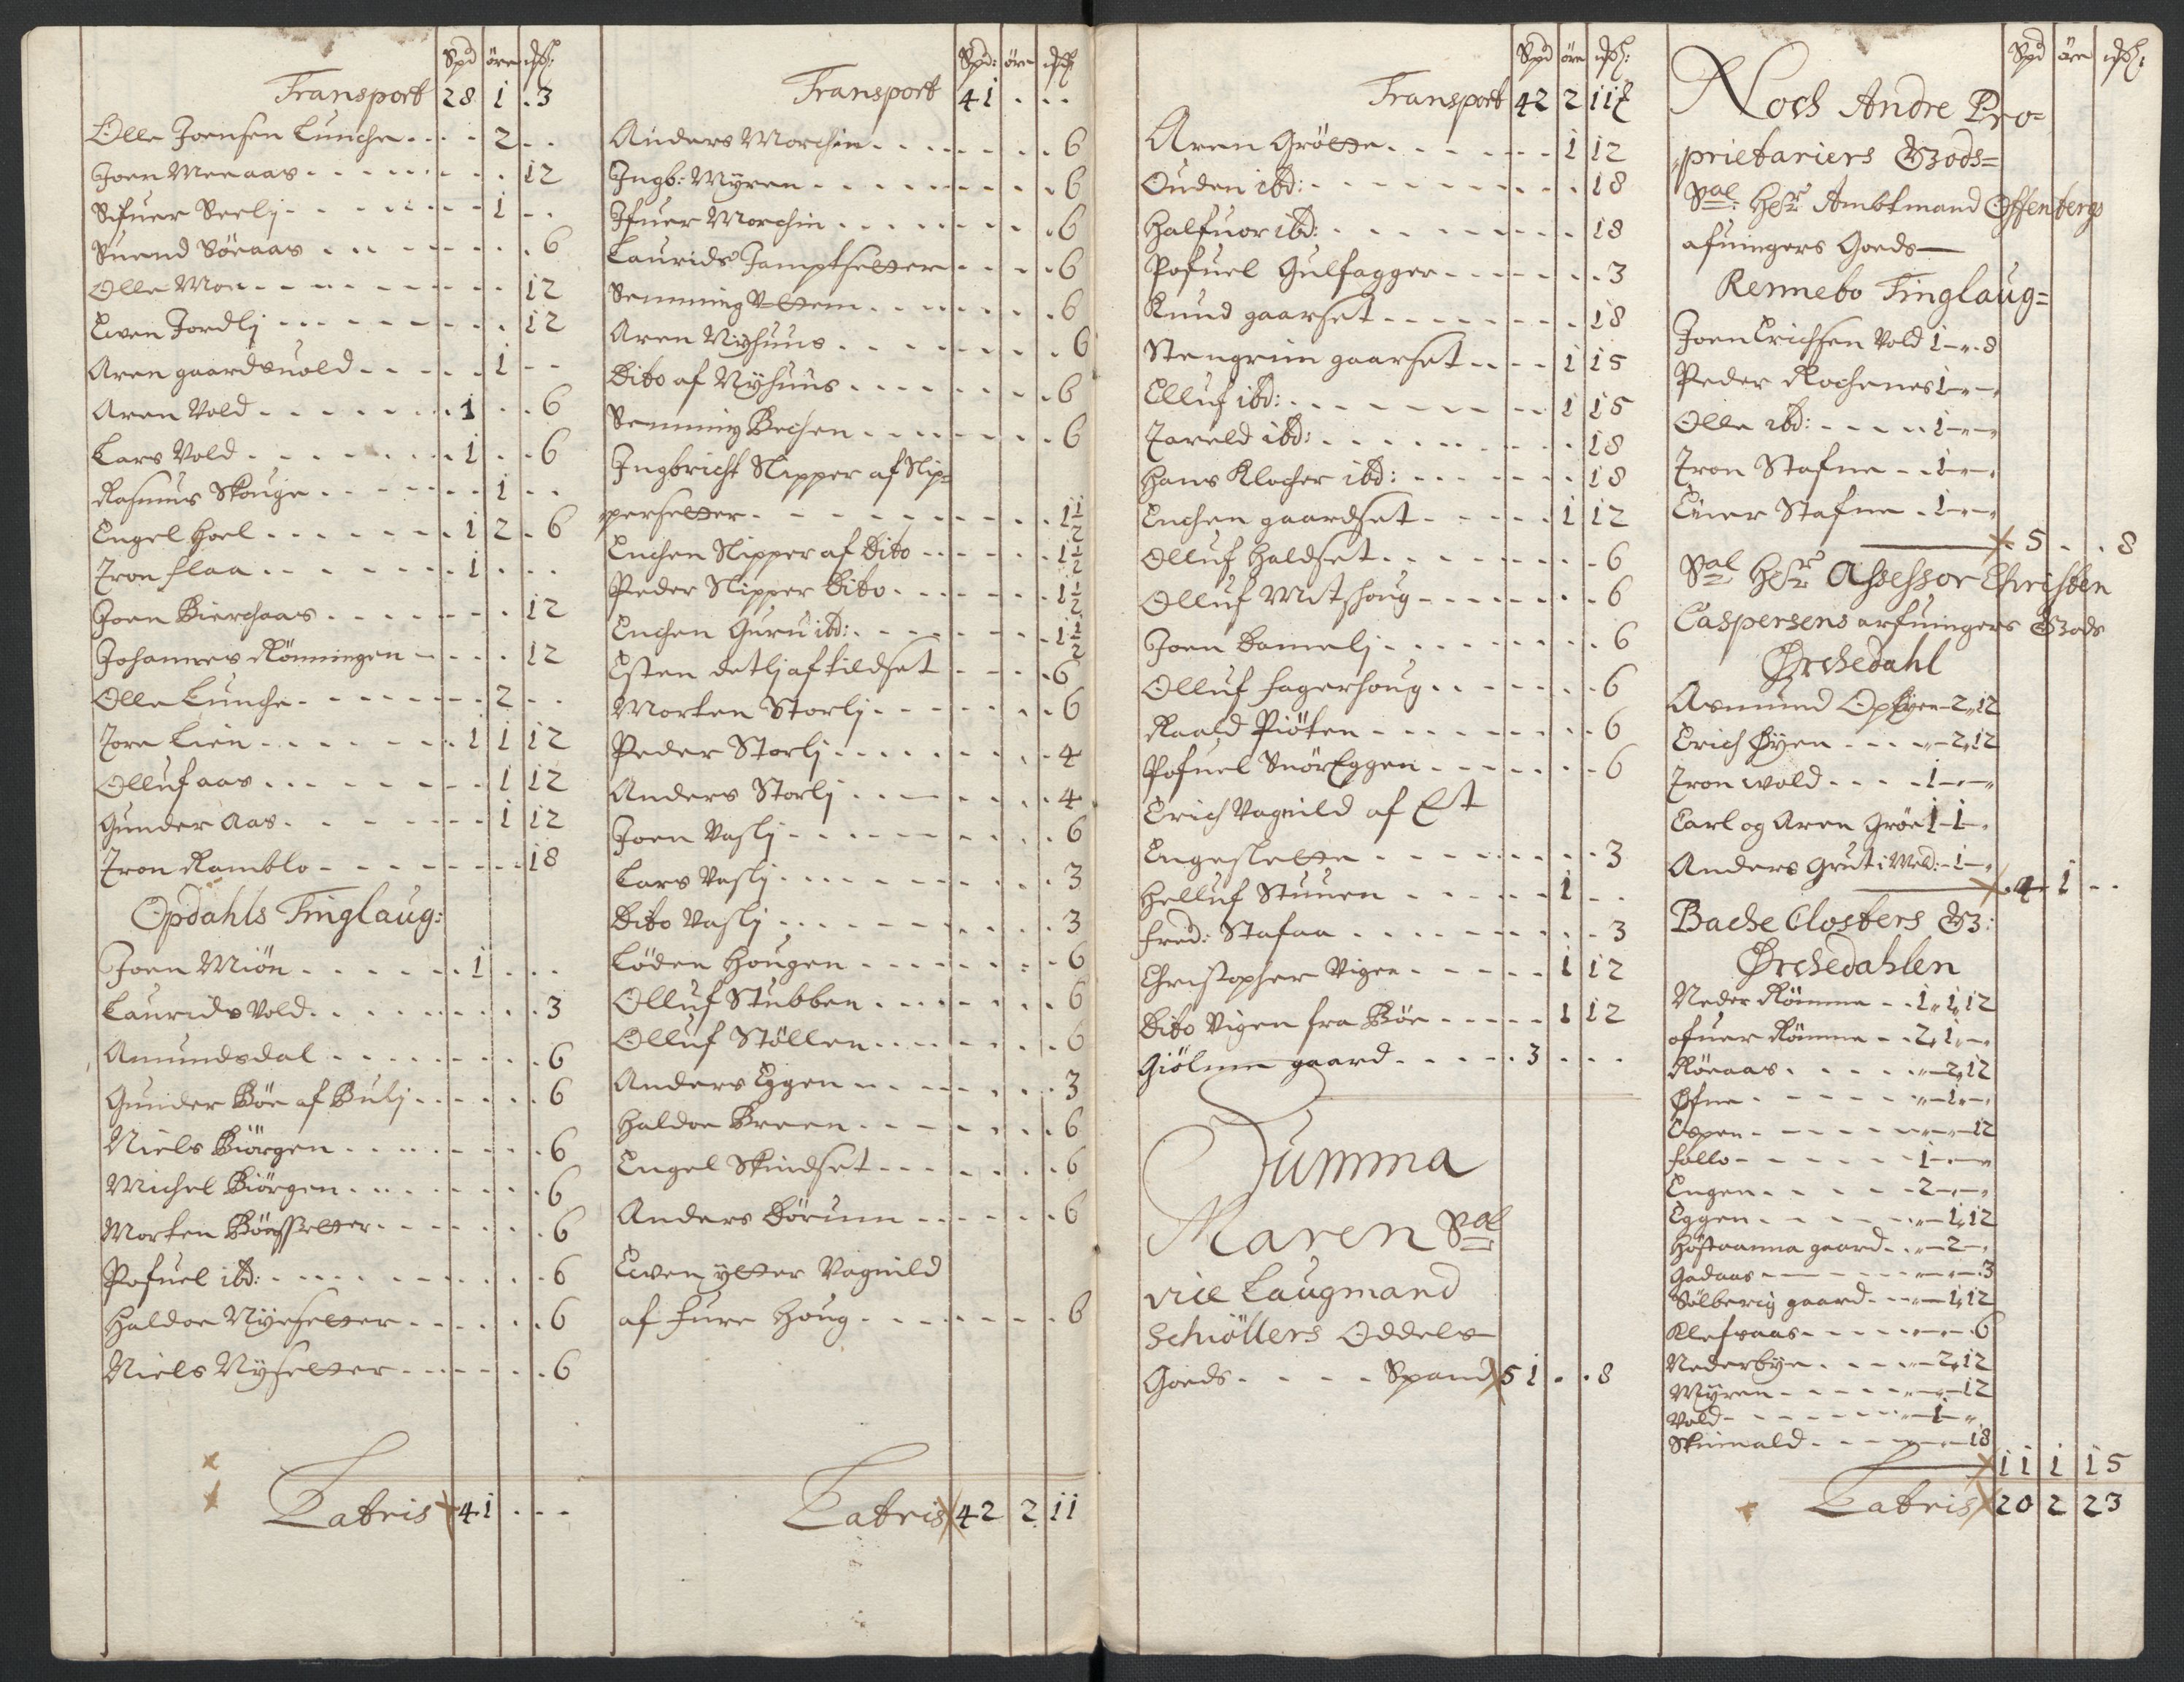 Spd öre ß:
Transport 28 1 . 3
Olle Joensen Lunche . . 2 . .
Joen Meeaas . . . 12
Sifuer Seelj . . 1 . .
Suend Söeaas . . . 6
Olle Moe . . . 12
Ewen Jordlj . . . 12
Aren gaardsuold . . 1 . .
Aren Vold . . . 1 . . 6
Lars Vold . . . 1 . . 6
Rasmus Skouge . . . 1 . .
Engel Hoel . . . 1 2 . 6
Tron Flaa . . . 1 . . .
Joen Bierchaas . . . 12
Johannes Rönningen . . . 12
Olle Lunche . . . 2 . .
Tore Lien . . . 1 1 12
Olluf aas . . . 1 12
Gunder Aas . . . 1 12
Tron Ramblo . . . 18
Opdahls Tinglaug:
Joen Miön . . . 1 . . .
Laurids Vold . . . 3
Amundsdal . . . 6
Gunder Böe af Bulj . . . 6
Niels Biörgen . . . 6
Michel Biörgen . . . 6
Morten Böesetter . . . 6
Pofuel ibd: . . . 6
Haldoe Nyesetter . . . 6
Niels Nysetter . . . 6
Latris 41 . . .
Spd: öre ß
Transport 41 . . .
Anders Morchin . . . 6
Ingb: Myren . . . 6
Ifuer Morchin . . . 6
Laurids Jamptsetter . . . 6
Semming Vttem . . . 6
Aren Nyhuus . . . 6
Dito af Nyhuus . . . 6
Semming Bechen . . . 6
Ingbricht Slipper af Slip=
persetter . . . 1 1/2
Enchen Slipper af Dito . . . 1 1/2
Peder Slipper Dito . . . 1 1/2
Enchen Guru ibd: . . . 1 1/2
Esten detlj af tildset . . . 6
Morten Storlj . . . 6
Peder Storlj . . . 4
Anders Storlj . . . 4
Joen Vaslj . . . 6
Lars Vaslj . . . 3
Dito Vaslj . . . 3
Löden Hougen . . . 6
Olluf Stubben . . . 6
Olluf Stöllen . . . 6
Anders Eggen . . . 3
Haldoe Breen . . . 6
Engel Skindset . . . 6
Anders Dörum . . . 6
Ewen ytter Vognild
af Fure Houg . . . 6
Latris 42 2 11
Spd öre ß:
Transport 42 2 11
Aren Grötte . . . 1 12
Ouden ibd: . . . 18
Halfuor ibd: . . . 18
Pofuel Gulfagger . . . 3
Knud gaarset . . . 18
Stengrim gaarset . . . 1 15
Elluf ibd: . . . 1 15
Tareld ibd: . . . 18
Hans Klocher ibd: . . . 18
Enchen gaardset . . . 1 12
Olluf Haldset . . . 6
Olluf Mitshoug . . . 6
Joen Damelj . . . 6
Olluf Fagerhoug . . . 6
Raald Piöten . . . 6
Pofuel Snöreggen . . . 6
Erich Vognild af Et
Engeslette . . . 3
Helluf Stuuen . . . 1 . .
Fred: Stafaa . . . 3
Christopher Vigen . . . 1 12
Dito Vigen fra Böe . . . 1 12
Giölme gaard . . . 3 . . .
Summa
Maren Sal
vice Laugmand
Schiöllers Oddels
Goeds . . . Spand 51 . . 8
Spd öre ß:
Noch Andre Pro=
prietariers Gods=
Sal: Her Ambtmand Offenbergs
afuingers Goeds
Rennebo Tinglaug=
Joen Erichsen Vold 1 - „ - 8
Peder Rochenes 1 - „ - „
Olle ibd: . . . 1 - „ - „
Tron Stafne . . 1 - „ - „
Einer Stafne . 1 - „ - „
5 . . 8
Sal Her Assessor Christen
Caspersens arfuingers Gods
Ørchedahl
Asmund Opöyen - 2 „ 12
Erich Øyen . . . „ - 2 „ 12
Tron wold . . . 1 - „ - „
Carl og Aren Gröe 1 - 1 - „
Anders Grut i Meld: - 1 - „
4 1 . .
Bache Closters G:
Ørchedahlen
Neder Römme . . 1 „ 1 „ 12
ofuer Römme . . 2 „ 1 „ -
Röeaas . . . „ - 2 „ 12
Øfne . . . „ - 1 - „
Espen . . . „ - „ - 12
Follo . . . 1 - „ - „
Engen . . . 2 - „ - „
Eggen . . . „ - 1 „ 12
Höstanna gaard . . „ - 2 - „
Gadaas . . . „ - „ - 3
Sölberig gaard . . „ - 1 „ 12
Klefsaas . . . „ - „ - 6
Nederbye . . . „ - 2 „ 12
Myren . . . „ - „ - 12
Vold . . . „ - 1 - „
Skinnald . . . „ - 18
11 1 15
Latris 20 2 23